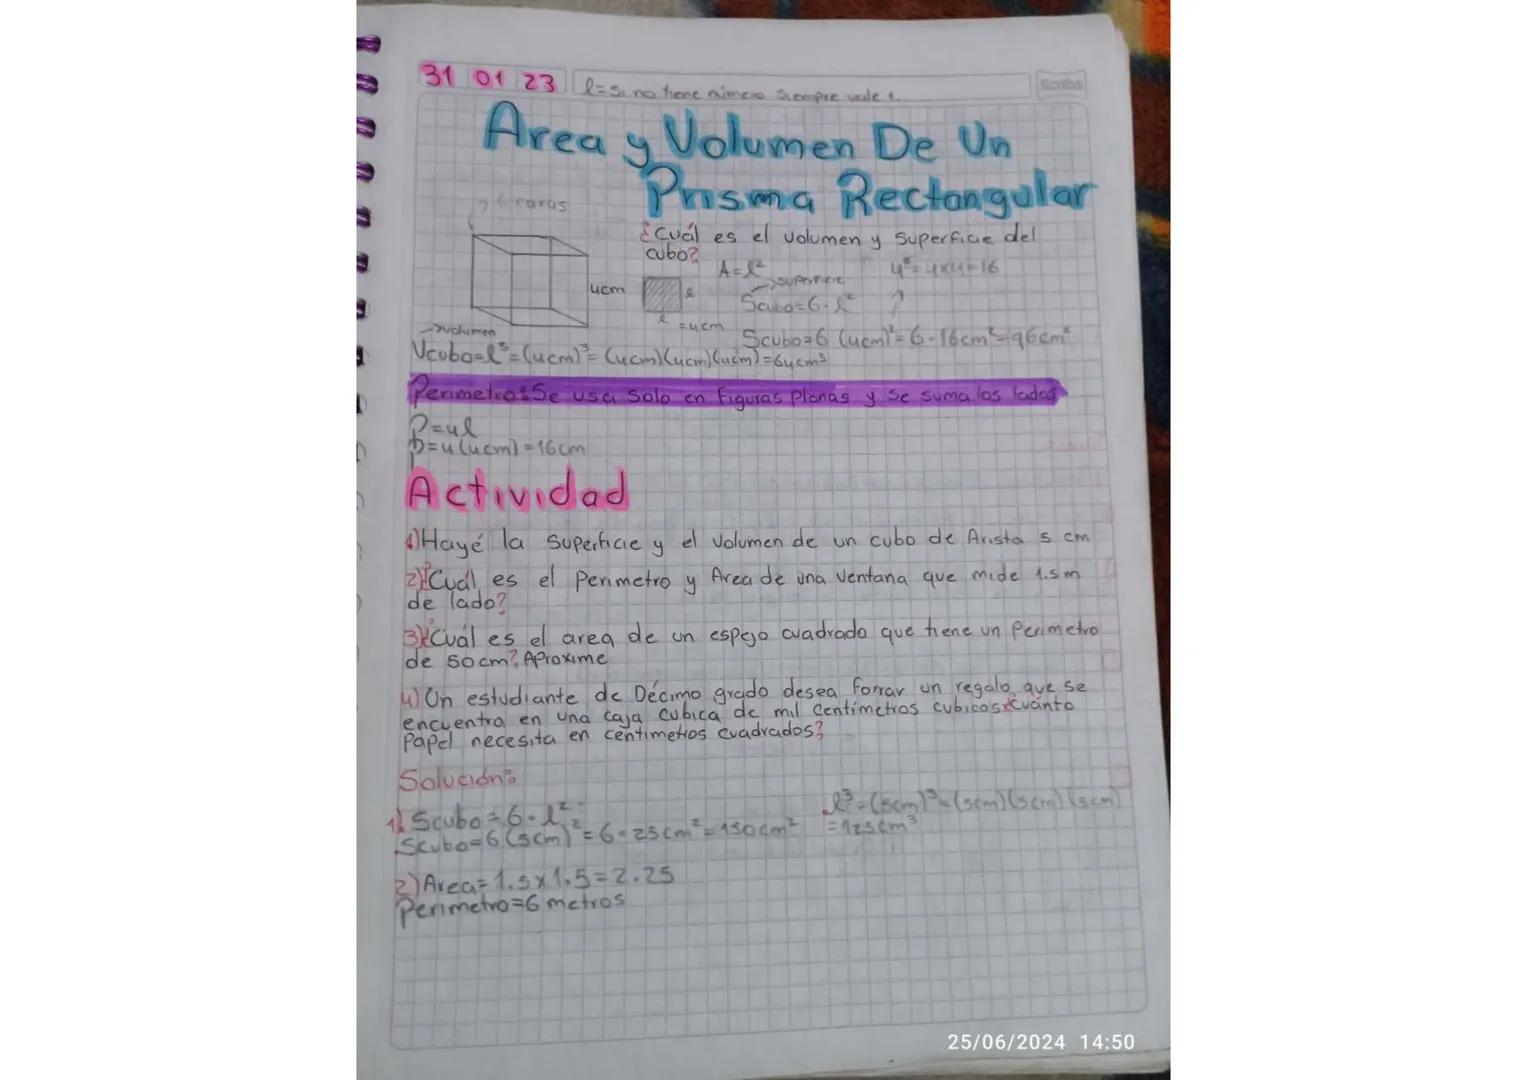 31 01 23
l=si no tiene número siempre vale 1.
Scribe
Area y Volumen De Un
Prisma Rectangular
6 caras
¿Cuál es el volumen y superficie del
cubo?
A=l²
4²=4x4=16
superficie
4cm
l
Scubo=6·l²
l
=4cm
volumen
Scubo=6 (4cm)²=6·16cm²=96cm²
Vcubo=l³=(4cm)³=(4cm)(4cm)(4cm)=64cm³
Perimetro: Se usa solo en figuras planas y se suma los lados
P=4l
p=4(4cm)=16cm
Actividad
1)Hayé la superficie y el volumen de un cubo de Arista 5 cm
2)¿Cuál es el Perimetro y Area de una ventana que mide 1.5m
de lado?
3)¿Cuál es el area de un espejo cuadrado que tiene un Perimetro
de 50cm? Aproxime
4)Un estudiante de Décimo grado desea forrar un regalo que se
encuentra en una caja cubica de mil centímetros cubicos ¿Cuánto
Papel necesita en centimetros cuadrados?
Solución:
1) Scubo=6·l²
l³=(5cm)³=(5cm)(5cm)(5cm)
Scubo=6(5cm)²=6·25cm²=150cm²
=125cm³
2)Area=1.5x1.5=2.25
Perimetro=6 metros
25/06/2024 14:50